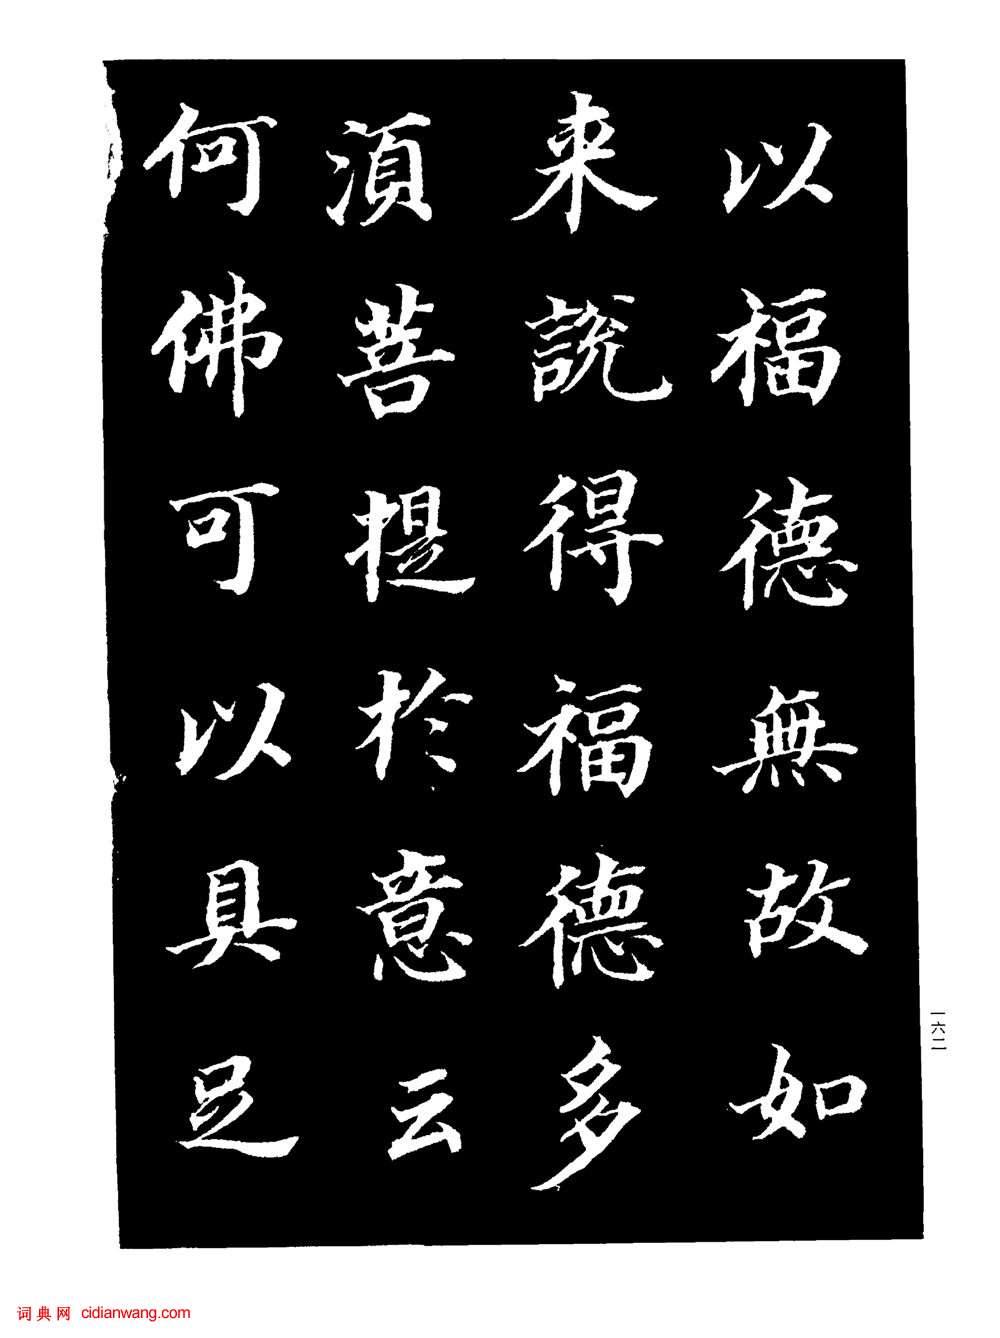 以福德無故如
来説得福德多
湏菩提於意云
何佛可以具足
一六二
词典网 cidianwang.com